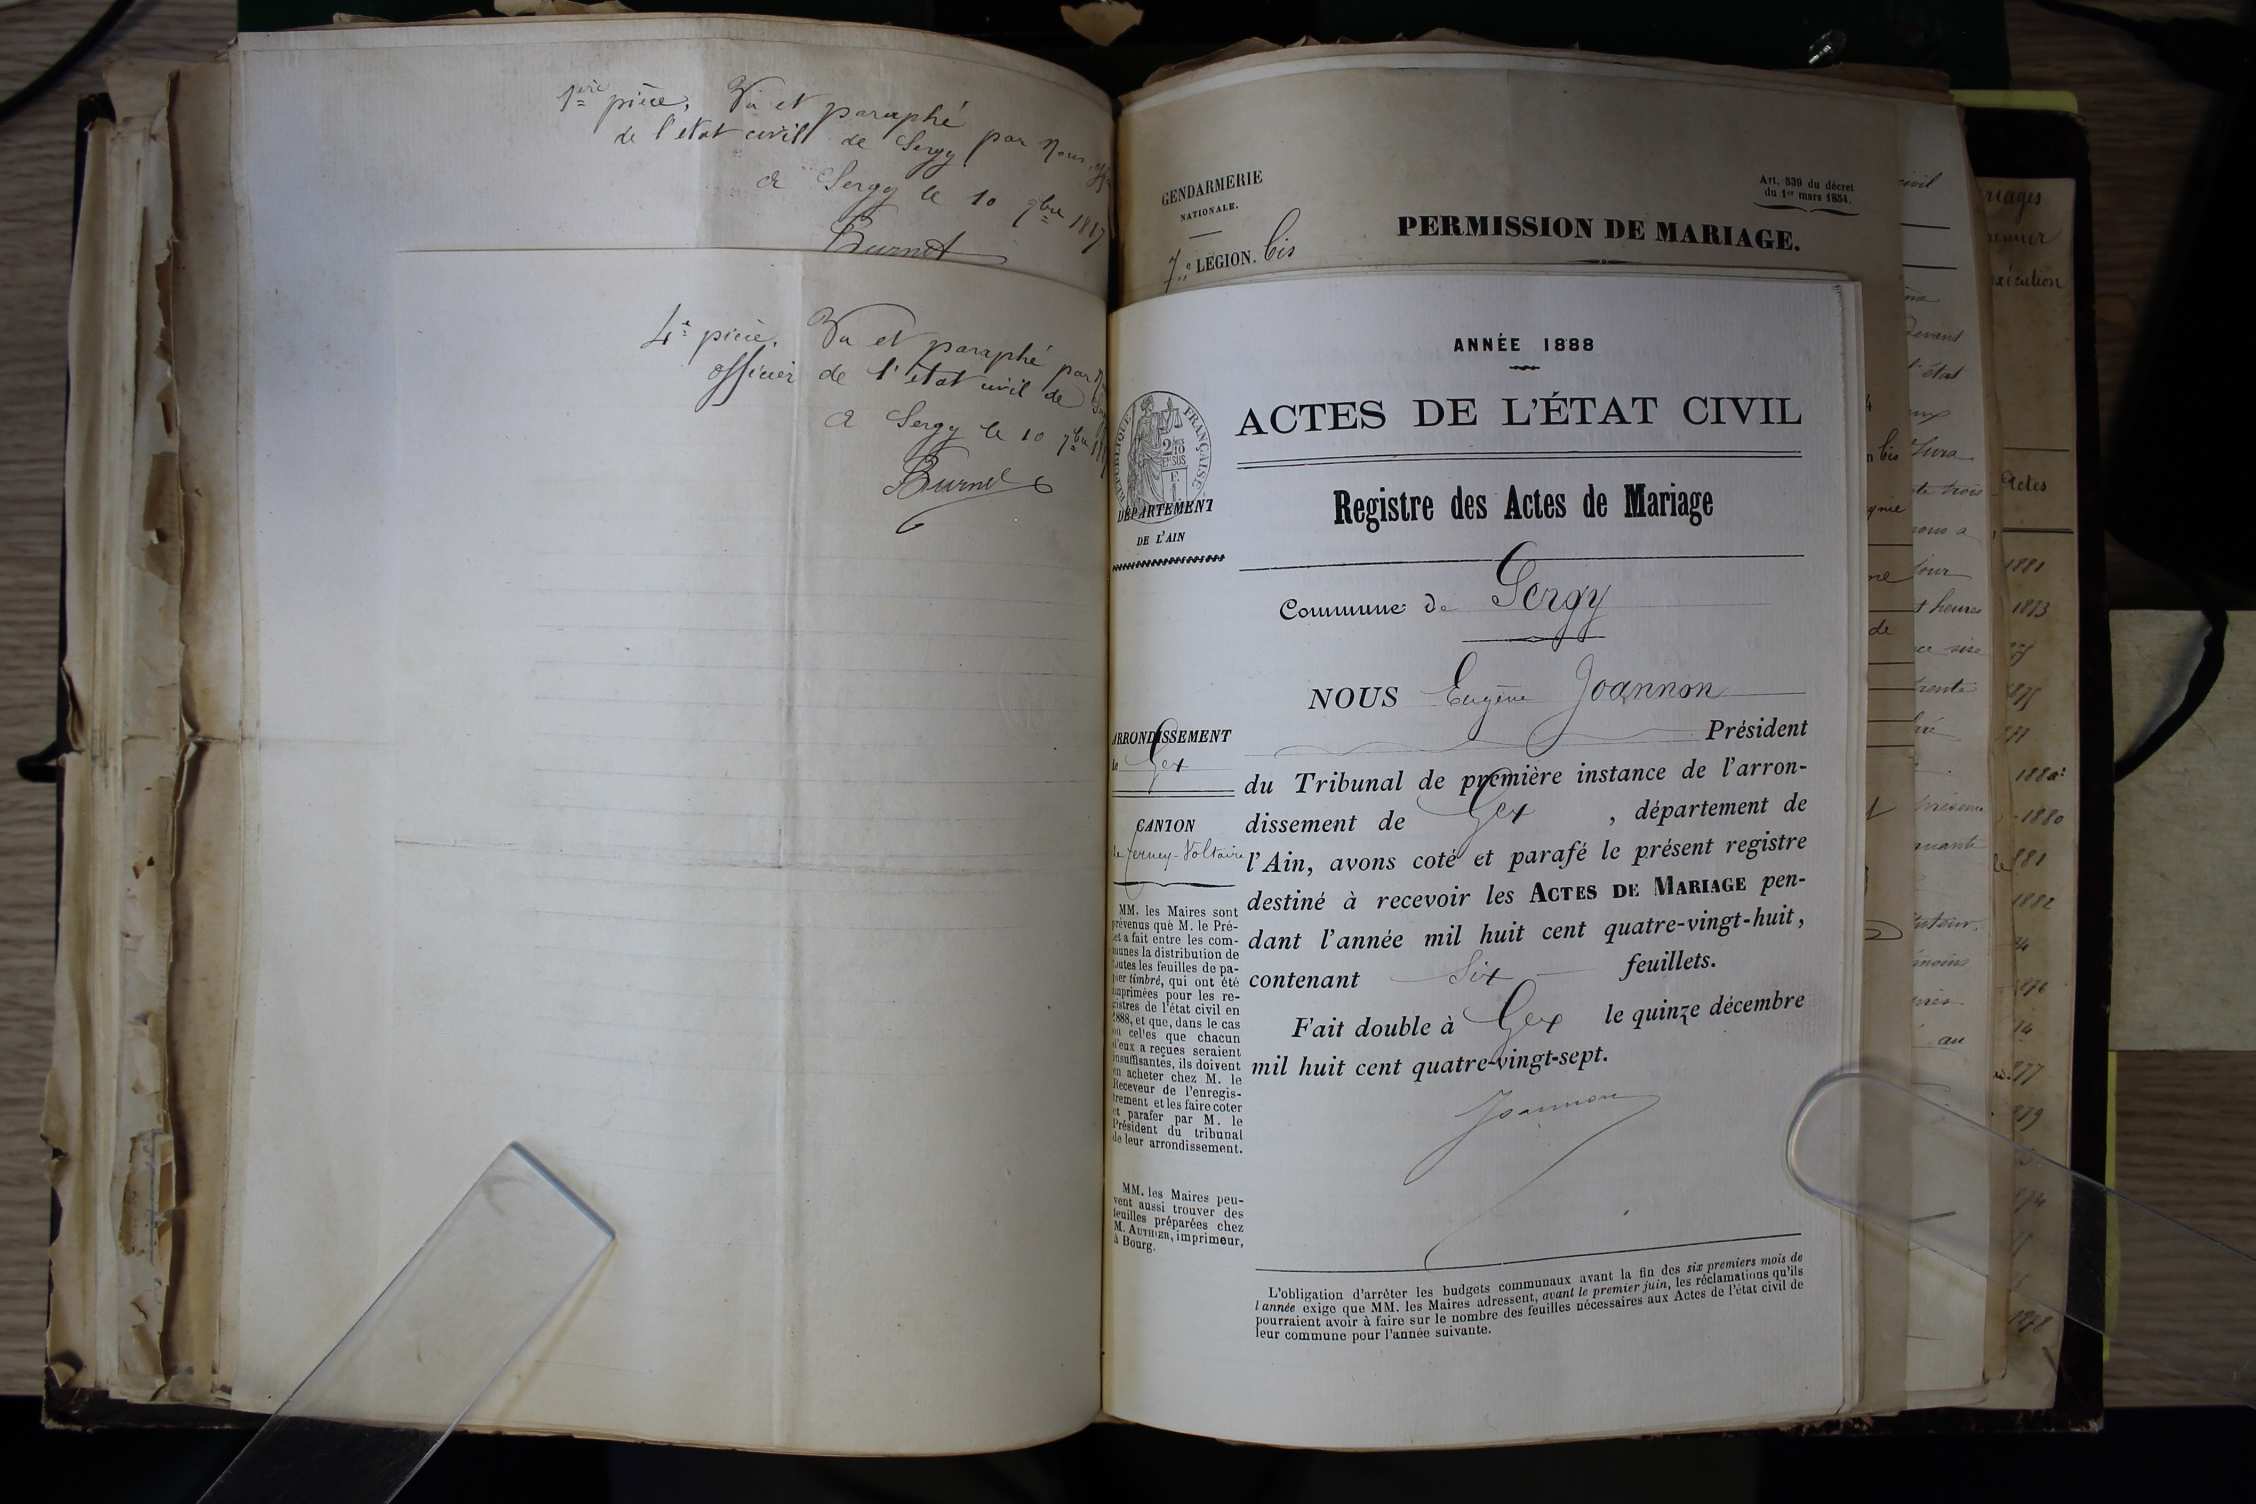 1ère pièce, Vu et paraphé par Nous
de l'état civil de Sergy
A Sergy le 10 9bre 1887
Burnet
4e pièce, Vu et paraphé par
officier de l'état civil de
A Sergy le 10 9bre
Burnet
GENDARMERIE
NATIONALE.
7e LÉGION. bis
Art. 539 du décret
du 1er mars 1854.
PERMISSION DE MARIAGE.
ANNÉE 1888
ACTES DE L'ÉTAT CIVIL
RÉPUBLIQUE FRANÇAISE
DÉPARTEMENT
DE L'AIN
Registre des Actes de Mariage
Commune de Sergy
NOUS Eugène Joannon
Président
du Tribunal de première instance de l'arron-
dissement de Gex, département de
l'Ain, avons coté et parafé le présent registre
destiné à recevoir les ACTES DE MARIAGE pen-
dant l'année mil huit cent quatre-vingt-huit,
contenant Six feuillets.
Fait double à Gex le quinze décembre
mil huit cent quatre-vingt-sept.
Joannon
ARRONDISSEMENT
de Gex
CANTON
de Ferney-Voltaire
MM. les Maires sont
prévenus que M. le Pré-
fet a fait entre les com-
munes la distribution de
toutes les feuilles de pa-
pier timbré, qui ont été
imprimées pour les re-
gistres de l'état civil en
1888, et que, dans le cas
où celles que chacun
d'eux a reçues seraient
insuffisantes, ils doivent
en acheter chez M. le
Receveur de l'enregis-
trement et les faire coter
et parafer par M. le
Président du tribunal
de leur arrondissement.
MM. les Maires peu-
vent aussi trouver des
feuilles préparées chez
M. AUTHIER, imprimeur,
à Bourg.
L'obligation d'arrêter les budgets communaux avant la fin des six premiers mois de
l'année exige que MM. les Maires adressent, avant le premier juin, les réclamations qu'ils
pourraient avoir à faire sur le nombre des feuilles nécessaires aux Actes de l'état civil de
leur commune pour l'année suivante.
civil
Devant
l'état
Jura
trois
jour
heures
trente
au
exécution
Actes
1881
1873
1880
881
1882